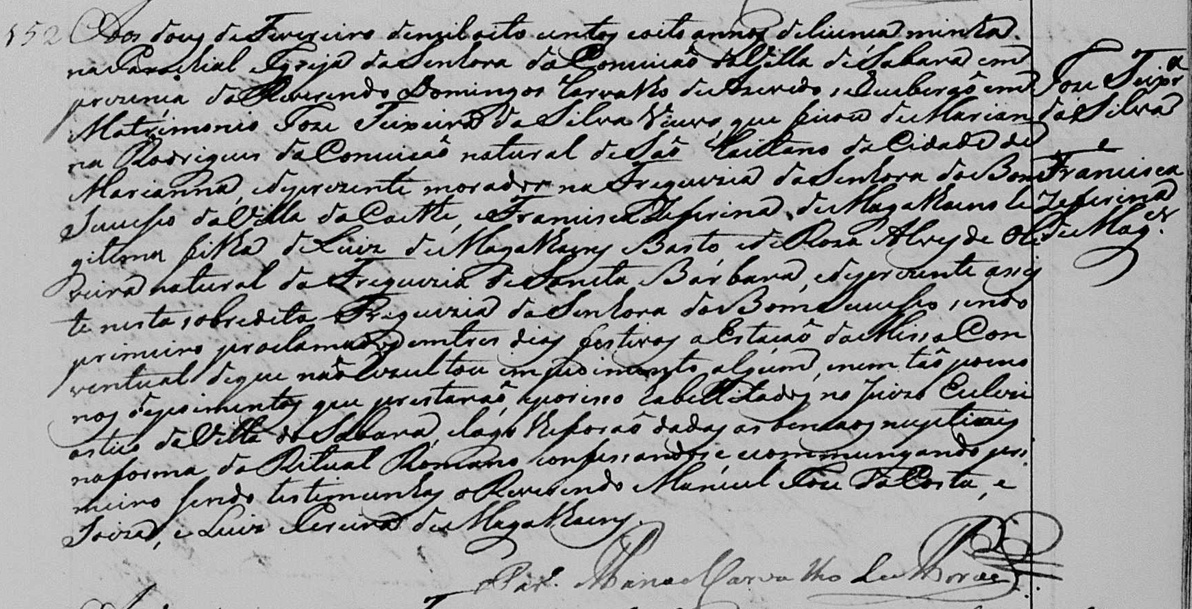 152 Aos dous de Fevereiro de mil oito centos e oito annos de licença minha
na Parochial Igreja da Senhora da Conceicaõ da Villa de Sabara em
prezença do Reverendo Domingos Carvalho de Azevedo se Receberaõ em
Matrimonio Joze Teixeira da Silva Viuvo, que ficou de Marian
na Rodrigues da Conceicaõ natural de Saõ Caitano da Cidade de
Marianna, e de prezente morador na Freguezia da Senhora do Bom
Sucesso da Villa do Caethé, e Francisca Zeferina de Magalhaens le
gitima filha de Luiz de Magalhaens Basto e de Roza Alves de Oli
veira natural da Freguezia de Sancta Barbara, e de prezente assis
te nesta sobredita Freguezia da Senhora do Bom Sucesso, sendo
primeiro proclamados em tres dias festivos a Estacaõ da Missa Con
ventual de que naõ Rezultou impedimento algum, nem taõ pouco
nos depoimentos que prestaraõ e por isso habellitados no Juizo Eclezi
astico da Villa do Sabara, e logo lhe foraõ dadas as bençaos nupciaes
na forma do Ritual Romano confessandose e commungando pri
meiro sendo testimunhas o Reverendo Manuel Joze da Costa, e
Souza, e Luiz Pereira de Magalhaens.
Joze Teixrª
da Silva
e
Francisca
Zeferina
de Mag.es
Manoel Carvalho de Moraes